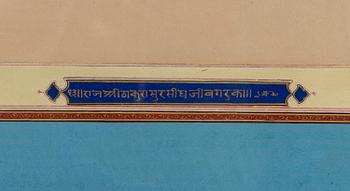 ॥राजश्रीठाकुरामुरसीघजीबगरुका॥